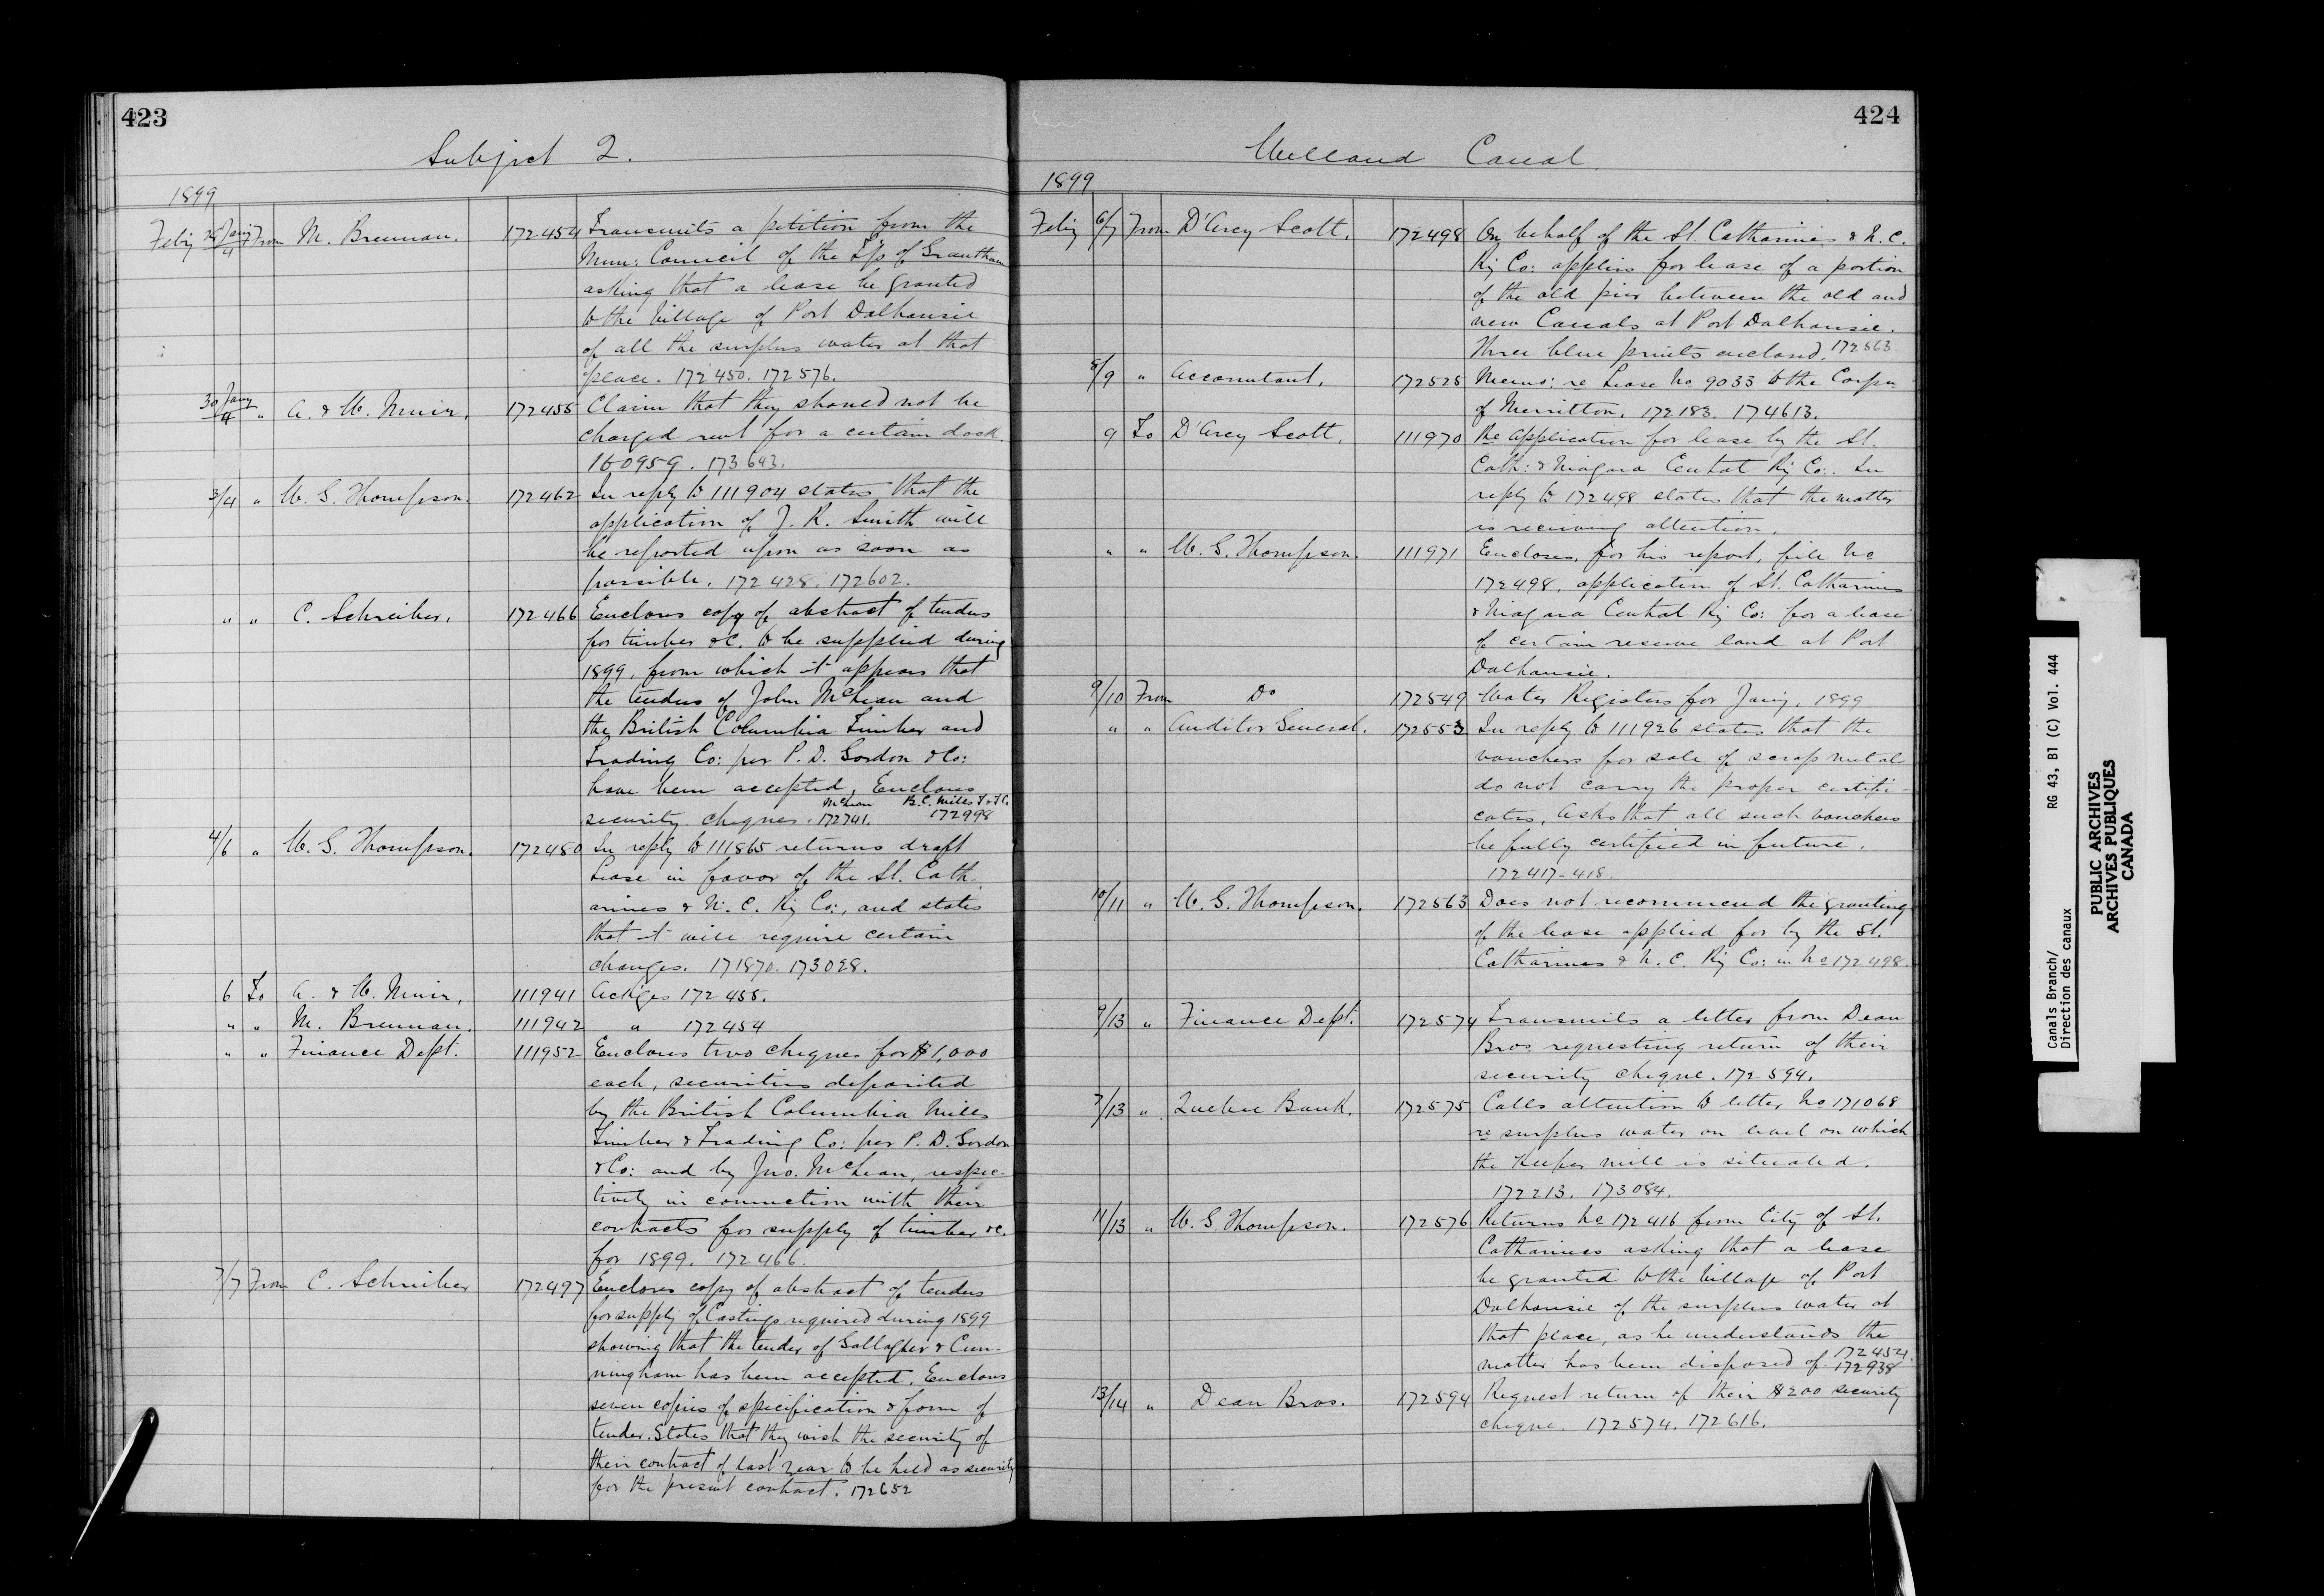 423
Subject 2.
1899
Feby 28 Jany/4 From M. Brennan. 172454 Transmits a petition from the
Mun: Council of the T'p of Grantham
asking that a lease be granted
to the Village of Port Dalhousie
of all the surplus water at that
place. 172450. 172576.
30 Jany/4 " A. & W. Muir. 172455 Claim that they should not be
charged rent for a certain dock.
160959. 173643.
3/4 " W. G. Thompson. 172462 In reply to 111904 states that the
application of J. R. Smith will
be reported upon as soon as
possible. 172428. 172602.
" " C. Schreiber. 172466 Encloses copy of abstract of tenders
for timber &c. to be supplied during
1899, from which it appears that
the tenders of John McLean and
the British Columbia Timber and
Trading Co: per P. D. Gordon & Co:
have been accepted. Encloses
security cheques. McLean 172741. B.C. Mills T & T Co 172998
4/6 " W. G. Thompson. 172480 In reply to 111865 returns draft
Lease in favor of the St. Cath-
arines & N. C. Ry Co:, and states
that it will require certain
changes. 171870. 173028.
6 To A. & W. Muir, 111941 Ackges 172455.
" " M. Brennan. 111942 " 172454
" " Finance Dept. 111952 Encloses two cheques for $1,000
each, securities deposited
by the British Columbia Mills
Timber & Trading Co: per P. D. Gordon
& Co: and by Jno. McLean, respec-
tively in connection with their
contracts for supply of timber &c.
for 1899. 172466.
7/7 From C. Schreiber 172497 Encloses copy of abstract of tenders
for supply of Castings required during 1899
showing that the tender of Gallagher & Cun-
ningham has been accepted. Encloses
seven copies of specification & form of
tender. States that they wish the security of
their contract of last year to be held as security
for the present contract. 172652
424
Welland Canal
1899
Feby 6/7 From D'Arcy Scott. 172498 On behalf of the St. Catharines & N. C.
Ry Co: applies for lease of a portion
of the old pier between the old and
new Canals at Port Dalhousie.
Three blue prints enclosed. 172563.
8/9 " Accountant. 172525 Memo: re Lease No 9033 to the Corpn
of Merritton. 172183. 174613.
9 To D'Arcy Scott. 111970 Re application for lease by the St.
Cath: & Niagara Central Ry Co:. In
reply to 172498 states that the matter
is receiving attention.
" " W. G. Thompson. 111971 Encloses, for his report, file No
172498, application of St. Catharines
& Niagara Central Ry Co: for a lease
of certain reserve land at Port
Dalhousie.
9/10 From Do 172549 Water Registers for Jany, 1899
" " Auditor General. 172553 In reply to 111926 states that the
vouchers for sale of scrap metal
do not carry the proper certifi-
cates. Asks that all such vouchers
be fully certified in future.
172417-418.
10/11 " W. G. Thompson. 172563 Does not recommend the granting
of the lease applied for by the St.
Catharines & N. C. Ry Co: in No 172498.
9/13 " Finance Dept. 172574 Transmits a letter from Dean
Bros. requesting return of their
security cheque. 172594.
7/13 " Quebec Bank. 172575 Calls attention to letter No 171068
re surplus water on level on which
the Keefer mill is situated.
172213. 173084.
11/13 " W. G. Thompson. 172576 Returns No 172416 from City of St.
Catharines asking that a lease
be granted to the Village of Port
Dalhousie of the surplus water at
that place, as he understands the
matter has been disposed of. 172454. 172938
13/14 " Dean Bros. 172594 Request return of their $200 security
cheque. 172574. 172616.
Canals Branch/ RG 43, B1 (C) Vol. 444
Direction des canaux
PUBLIC ARCHIVES
ARCHIVES PUBLIQUES
CANADA